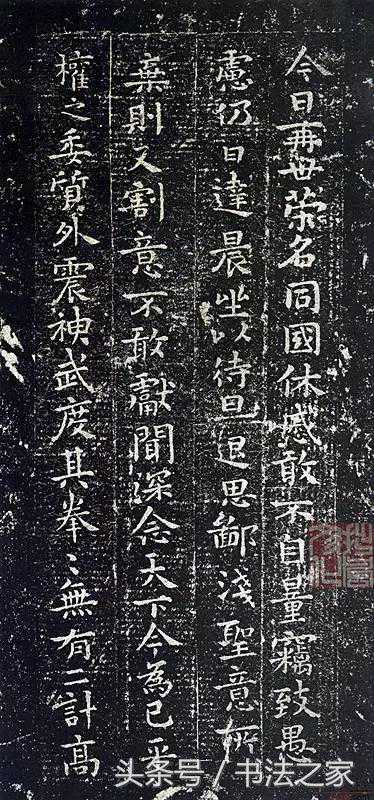 今日再世荣名同國休慼敢不自量竊致愚
慮仍日達晨坐以待旦退思鄙淺聖意所
棄則又割意不敢獻聞深念天下今為已平
權之委質外震神武度其拳〻無有二計高
头条号 / 书法之家